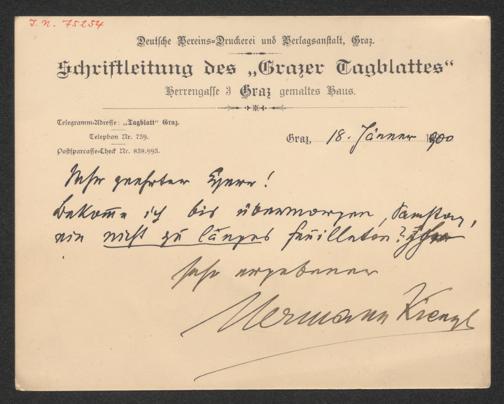 I. N. 75254
Deutsche Vereins-Druckerei und Verlagsanstalt, Graz.
Schriftleitung des „Grazer Tagblattes“
Herrengasse 3 Graz gemaltes Haus.
Telegramm-Adresse: „Tagblatt“ Graz.
Telephon Nr. 739.
Postsparcasse-Check Nr. 838.993.
Graz, 18. Jänner 1900
Sehr geehrter Herr!
Bekomme ich bis übermorgen, Samstag,
ein nicht zu langes Feuilleton?
Sehr ergebener
Hermann Kienzl